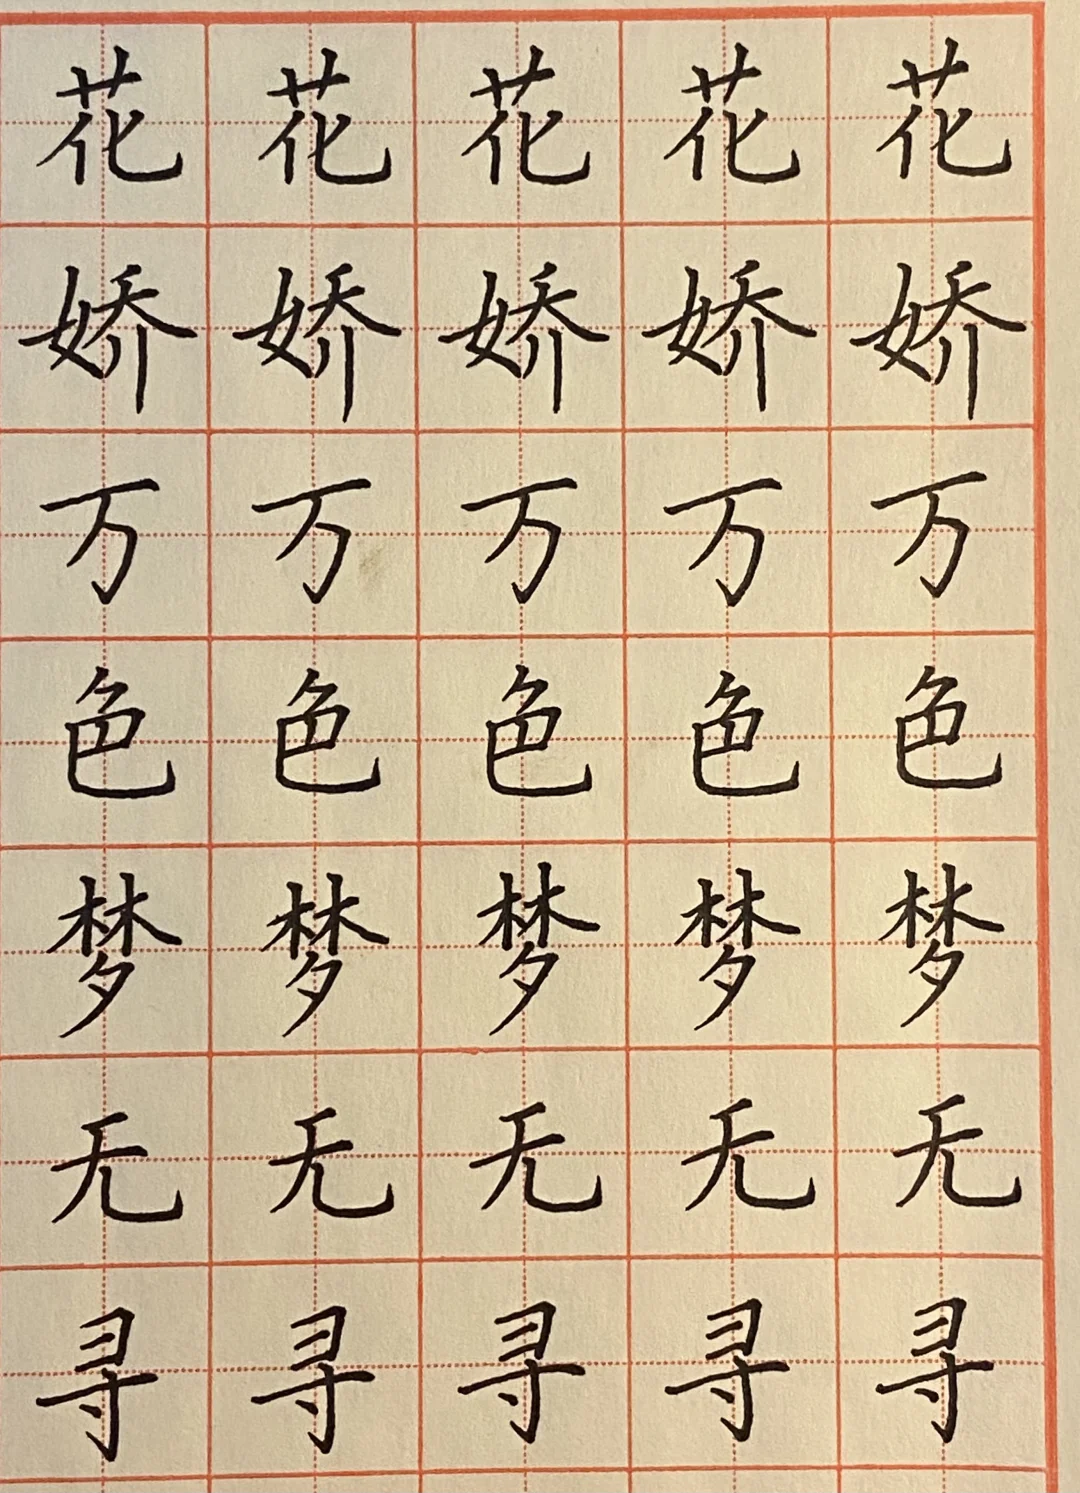 花花花花花
娇娇娇娇娇
万万万万万
色色色色色
梦梦梦梦梦
无无无无无
寻寻寻寻寻